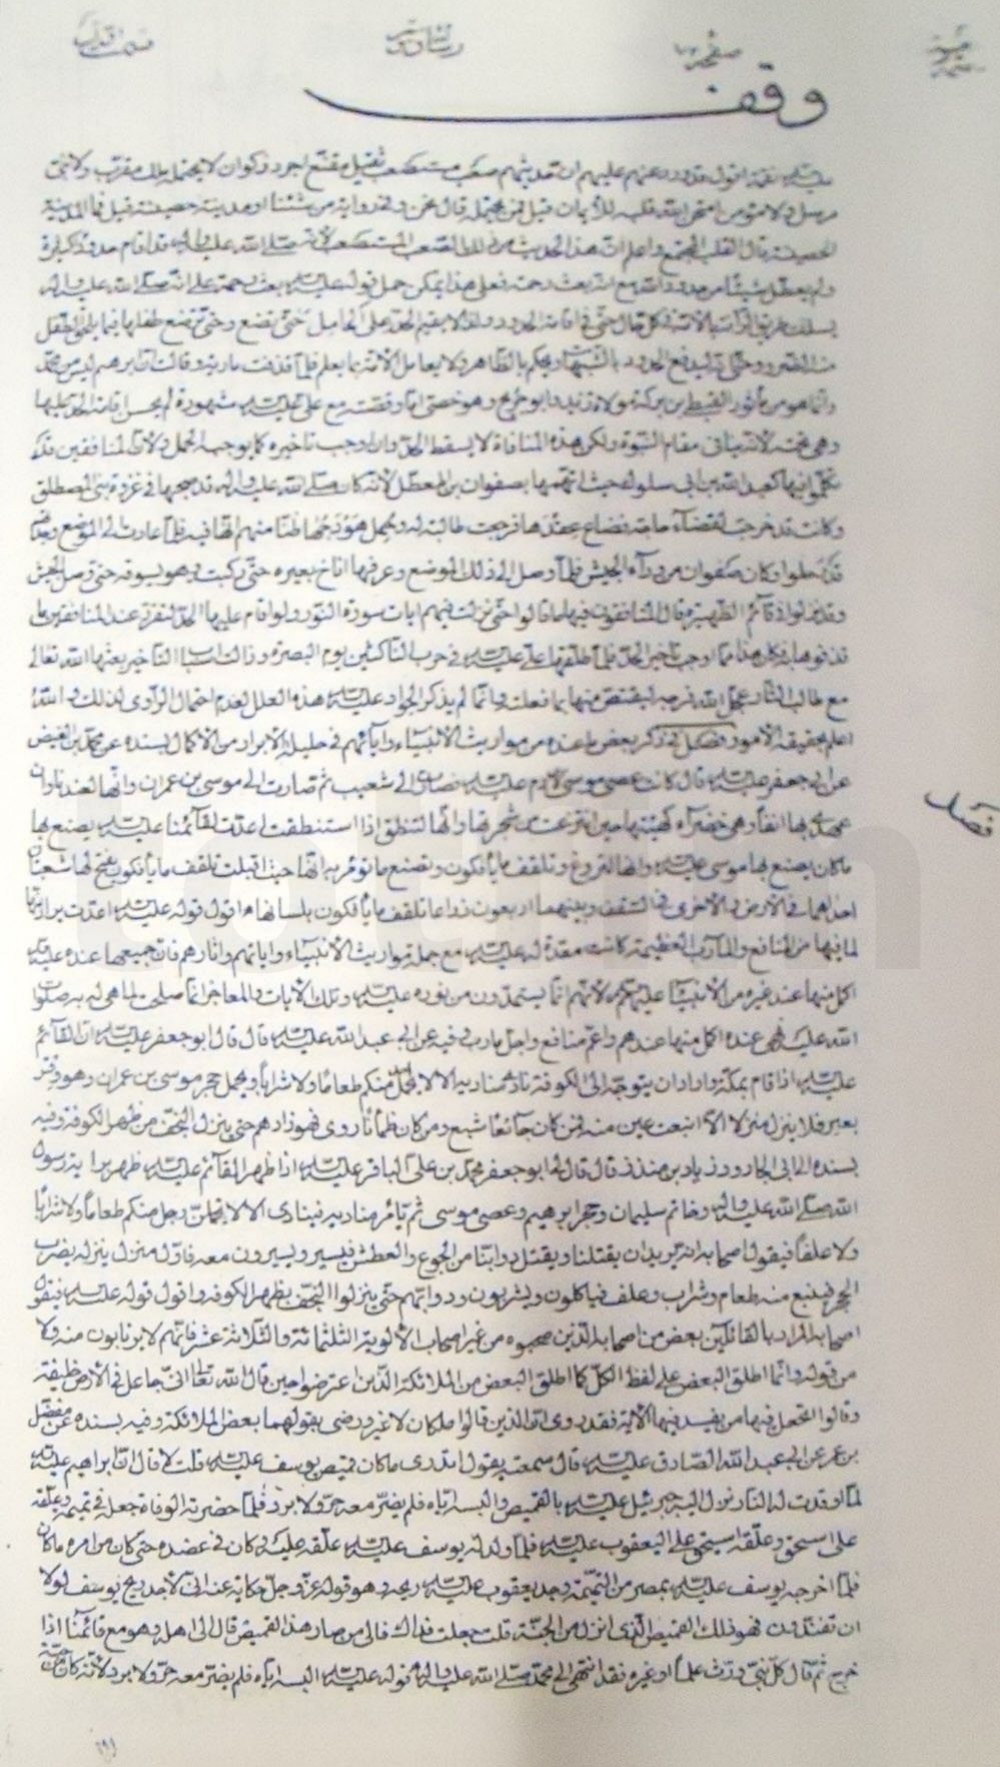 وقف
عليه نقمة اقول قد ورد عنهم عليهم ان حديثهم صعب مستصعب ثقيل مقنع اجرد ذكوان لا يحتمله ملك مقرب ولا نبي
مرسل ولا مؤمن امتحن الله قلبه للأيمان قيل فمن يحتمله قال نحن وفي رواية من شئنا او مدينة حصينة قيل فما المدينة
الحصينة قال القلب المجتمع واعلم ان هذا الحديث من ذلك الصعب المستصعب لأنه صلى الله عليه واله قد اقام حدودا كثيرة
ولم يعطل شيئا من حدود الله مع انه بعث رحمة فعلى هذا يمكن حمل قوله عليه السلام بعث رحمة على انه صلى الله عليه واله
وانما هو من مأثور القبطي بن بركة مولاه زيد وابو جريح وهو خصي
وهي محنة لأنه ينافي مقام النبوة ولكن هذه المنافاة لا يسقط الحد وان اوجب تاخيره كما يوجبه الحمل ولأن المنافقين قد
تكلموا فيها كعبد الله بن ابي سلول حيث اتهمها بصفوان بن المعطل لأنه كان صلى الله عليه واله قد صحبها في غزوة بني المصطلق
وكانت قد خرجت لقضاء حاجة فضاع عقدها فرجعت طالبة له وحمل هودجها ظنا منهم انها فيه فلما عادت الى الموضع وجدتهم
قد رحلوا وكان صفوان من وراء الجيش فلما وصل الى ذلك الموضع وعرفها اناخ بعيره حتى ركبت وهو يسوقه حتى وصل الجيش
وقد نزلوا في قائم الظهيرة وقال المنافقون فيها ما قالوا حتى نزلت فيهم ايات سورة النور ولو اقام عليها الحد لتقرر عند المنافقين ما
قذفوها به فكل هذا مما اوجب تاخير الحد فلما طلقها علي عليه السلام في حرب الناكثين يوم البصرة وزالت اسباب التاخير بعثها الله تعالى
مع طالب الثار عجل الله فرجه ليقتص منها بما فعلت وانما لم يذكر الجواد عليه السلام هذه العلل لعدم احتمال الراوي لذلك والله
اعلم بحقيقة الامور فصل في ذكر بعض ما عنده من مواريث الأنبياء وآياتهم في حلية الابرار من الاكمال بسنده عن محمد بن الفيض
عن ابي جعفر عليه السلام قال كانت عصى موسى لآدم عليه السلام فصارت الى شعيب ثم صارت الى موسى بن عمران وانها لعندنا وان
عهدي بها آنفا وهي خضراء كهيئتها حين انتزعت من شجرتها وانها لتنطق اذا استنطقت اعدت لقائمنا عليه السلام يصنع بها
ما كان يصنع بها موسى عليه السلام وانها لتروع وتلقف ما يأفكون وتصنع ما تؤمر به انها حيث اقبلت تلقف ما يأفكون يفتح لها شعبتان
احداهما في الأرض والأخرى في السقف وبينهما اربعون ذراعا تلقف ما يأفكون بلسانها اقول قوله عليه السلام اعدت
لما فيها من المنافع والمآرب العظيمة كانت معدة له عليه السلام مع جملة مواريث الأنبياء وآياتهم وآثارهم فان جميعها عنده عليه السلام
اكمل منها عند غيره من الأنبياء عليهم السلام لأنهم انما يستمدون من نوره عليه السلام وتلك الآيات والمعاجز انما صلحت لما هي له به صلوات
الله عليه فهي عنده اكمل منها عندهم واعم منافع واجل مارب وفيه عن ابي عبد الله عليه السلام قال قال ابو جعفر عليه السلام ان القائم
عليه السلام اذا قام بمكة واراد ان يتوجه الى الكوفة نادى مناديه الا لا يحمل احد منكم طعاما ولا شرابا ويحمل حجر موسى بن عمران وهو وقر
بعير فلا ينزل منزلا الا انبعث عين منه فمن كان جائعا شبع ومن كان ظمأنا روى فهو زادهم حتى ينزل النجف من ظهر الكوفة وفيه
بسنده الى ابي الجارود زياد بن منذر قال قال لي ابو جعفر محمد بن علي الباقر عليه السلام اذا ظهر القائم عليه السلام ظهر براية رسول
الله صلى الله عليه واله وخاتم سليمان وحجر ابرهيم وعصى موسى ثم يأمر مناديه فينادي الا لا يحملن رجل منكم طعاما ولا شرابا
ولا علفا فيقول اصحابه انه يريد ان يقتلنا ويقتل دوابنا من الجوع والعطش فيسير ويسيرون معه فاول منزل ينزله يضرب
الحجر فينبع منه طعام وشراب وعلف فياكلون ويشربون ودوابهم حتى ينزلوا النجف بظهر الكوفة واقول قوله عليه السلام فيقول
اصحابه المراد بالقائلين بعض من اصحابه الذين صحبوه من غير اصحاب الألوية الثلثمائة والثلاثة عشر فانهم لا يرتابون منه ولا
من قوله وانما اطلق البعض على لفظ الكل كما اطلق البعض من الملائكة الذين اعترضوا حين قال الله تعالى اني جاعل في الأرض خليفة
وقالوا اتجعل فيها من يفسد فيها الآية فقد روى ان الذين قالوا ملكان لا غير ورضى بقولهما بعض الملائكة وفيه بسنده عن مفضل
بن عمر عن ابي عبد الله الصادق عليه السلام قال سمعته يقول اتدري ما كان قميص يوسف عليه السلام قلت لا قال ان ابراهيم عليه السلام
لما اوقدت له النار نزل اليه جبرئيل عليه السلام بالقميص والبسه اياه فلم يضر معه حر ولا برد فلما حضرته الوفاة جعله في تميمة وعلقه
على اسحق وعلقه اسحق على يعقوب عليه السلام فلما ولد له يوسف عليه السلام علقه عليه وكان في عضده حتى كان من امره ما كان
فلما اخرجه يوسف عليه السلام بمصر من التميمة وجد يعقوب عليه السلام ريحه وهو قوله عز وجل حكاية عنه اني لأجد ريح يوسف لولا
ان تفندون فهو ذلك القميص الذي انزل من الجنة قلت جعلت فداك فالى من صار هذا القميص قال الى اهله وهو مع قائمنا اذا
خرج ثم قال كل نبي ورث علما او غيره فقد انتهى الى محمد صلى الله عليه واله قوله عليه السلام البسه اياه فلم يضر معه حر ولا برد لأنه كان من
فصل